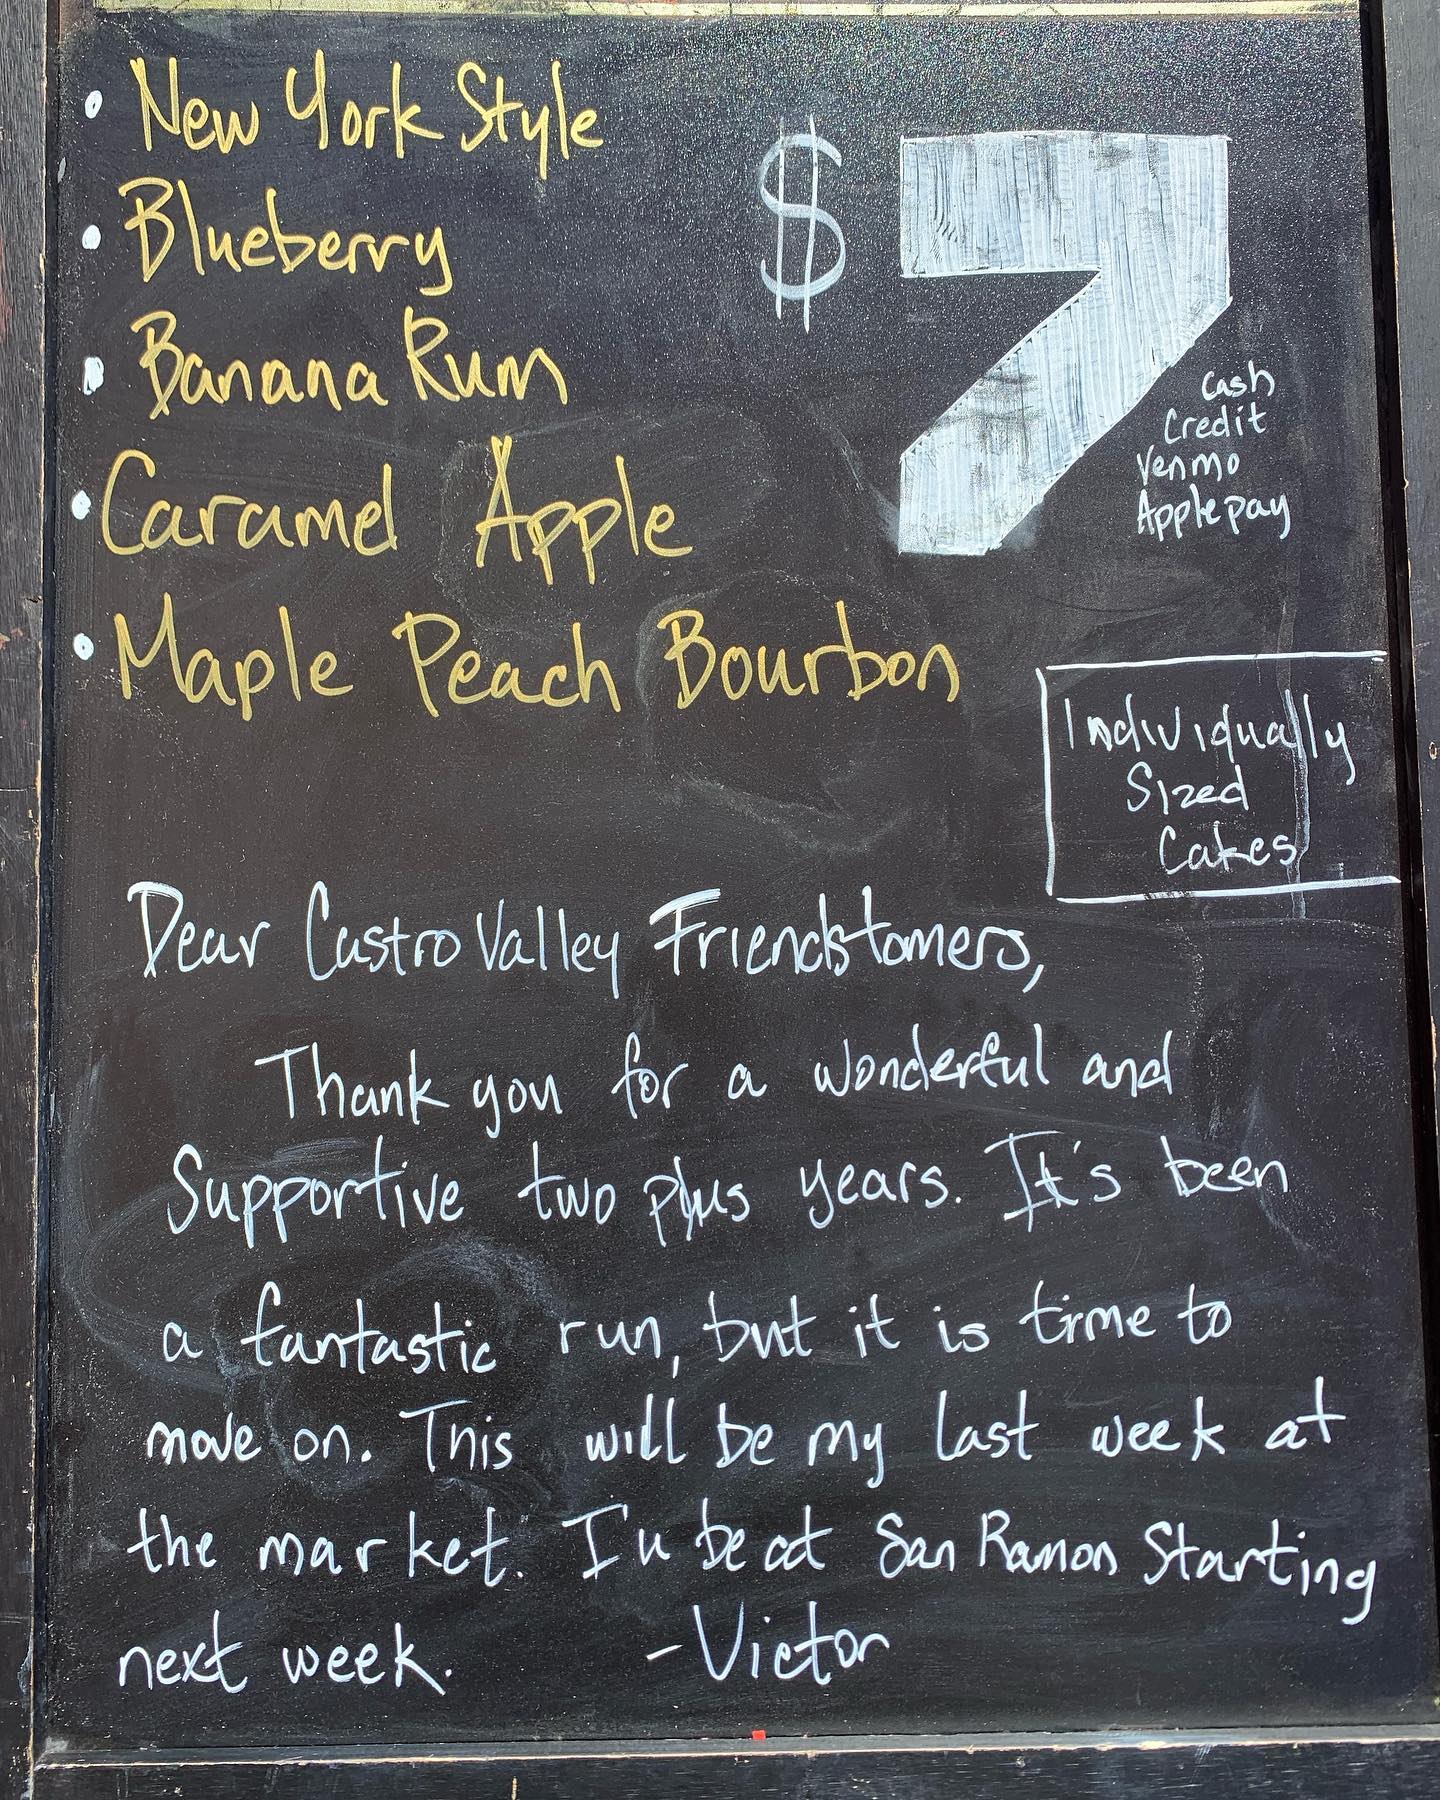 • New York Style
• Blueberry
• Banana Rum
• Caramel Apple
• Maple Peach Bourbon
$7
Cash
Credit
Venmo
Applepay
Individually
Sized
Cakes
Dear Castro Valley Friendstomers,
Thank you for a wonderful and
Supportive two plus years. It's been
a fantastic run, but it is time to
move on. This will be my last week at
the market. I'll be at San Ramon Starting
next week. - Victor